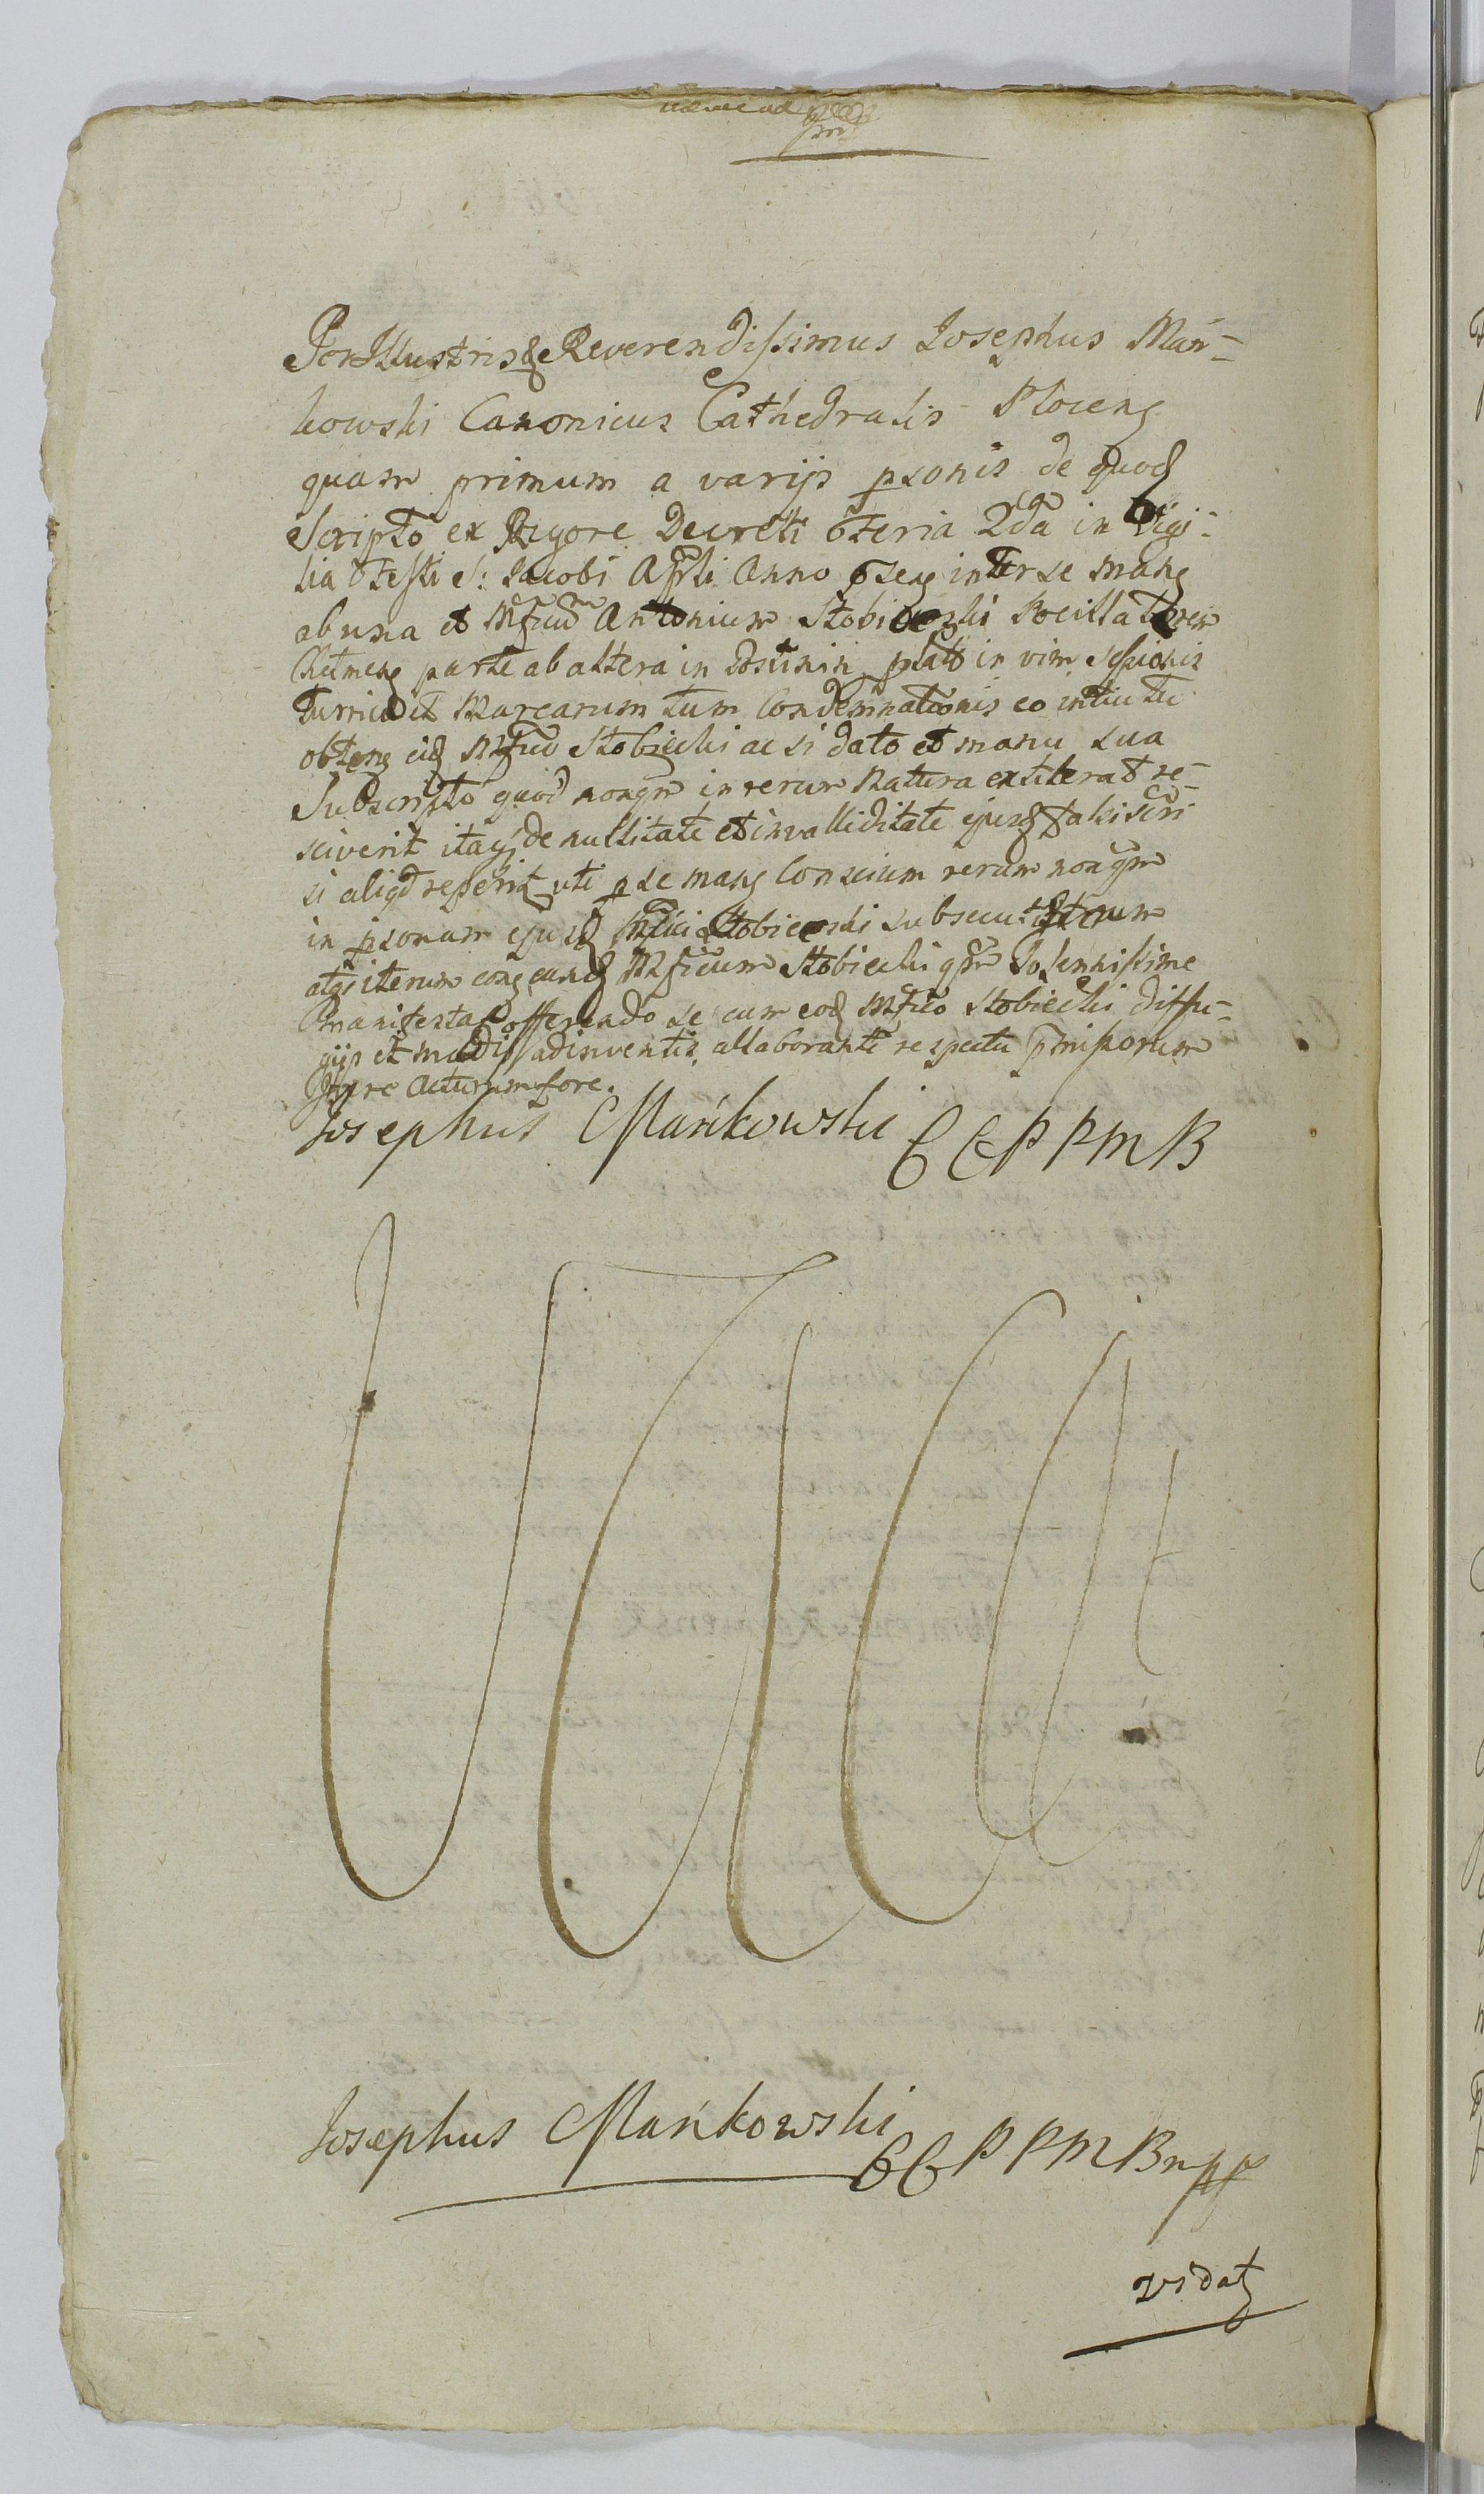 Per Illustris & Reverendissimus Josephus Mań-
kowski Canonicus Cathedralis Plocens
quam primum a varijs psonis de quod
Scripto ex Rigore Decreti feria 2da in Vigi-
lia festi S: Jacobi Apli Anno inter se
ab una et Mficum Antonium Stobiecki Pocillatorem
parte ab altera in in vim sessionis
turris et Marcarum tum Condemnationis eo intiutu
obtens Mfico Stobiecki ac si dato et manu sua
Subscripto quod nonqm in rerum Natura extiterat re-
sciverit itaq de nullitate et invalliditate ejusd talis scri
si aliqd reperit uti p se Conscium rerum nonqm
in psonam ejusd Mfici Stobiecki
atq iterum eund Mficum Stobiecki Solennissime
Manifestat offerendo se cum eod Mfico Stobiecki diffu-
gijs et modis adinventis allaborante respectu pmissorum
Jure Acturum fore.
Josephus Mańkowski C C P P M B
Josephus Mańkowski
C C P P M B mpp
vidat